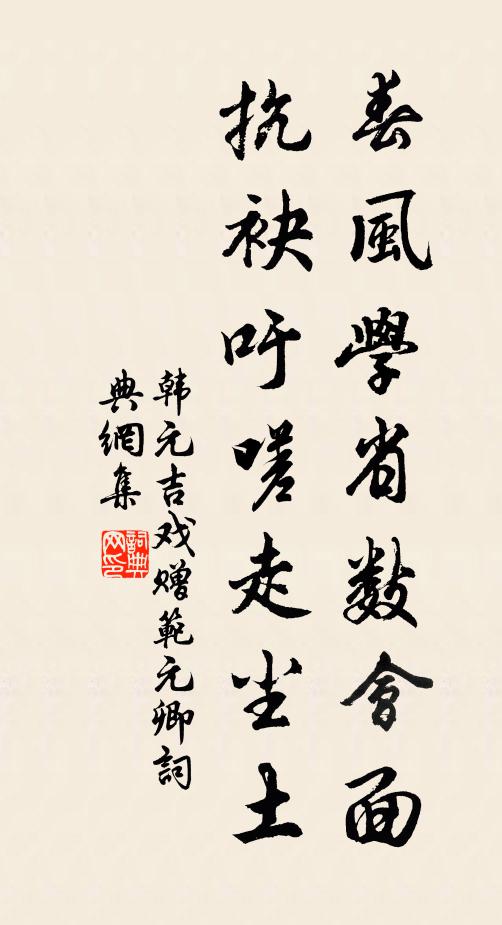 春風學省數會面
抗袂吁嗟走尘土
韩元吉戏赠範元卿詞
典網集
詞典
网印